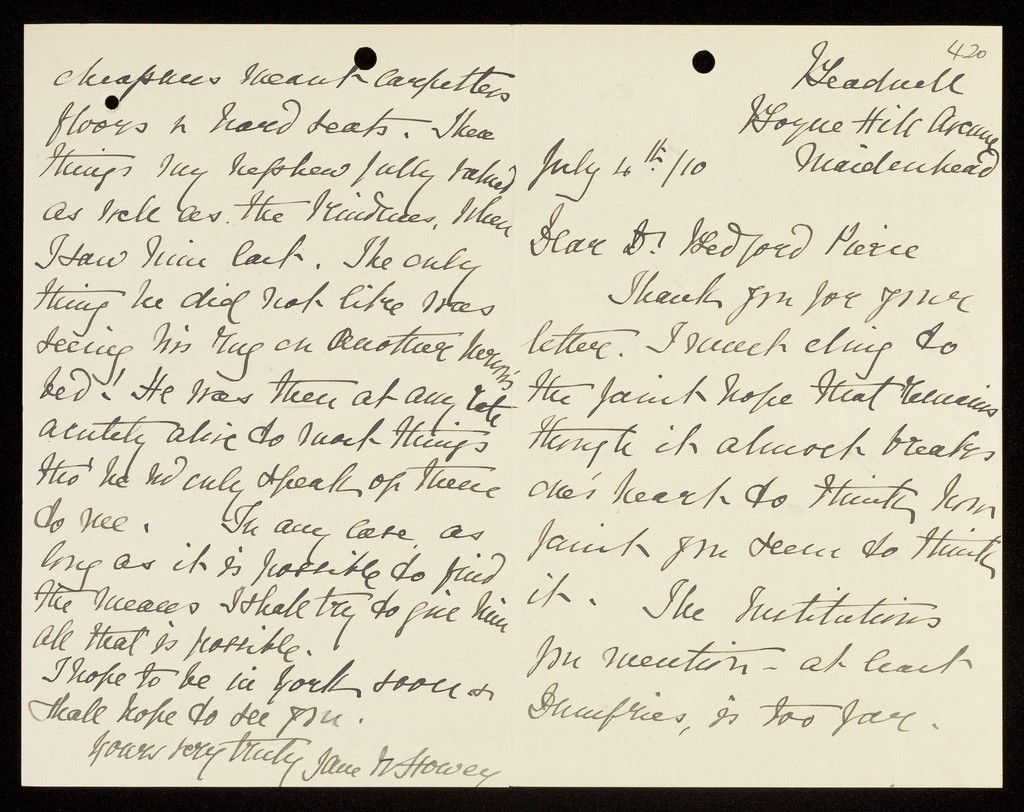 420
Headnill
Boyne Hill Avenue
Maidenhead
July 4th/10
Dear Dr Bedford Pierce
Thank you for your
letter. I must cling to
the faint hope that remains
though it almost breaks
one's heart to think how
faint you seem to think
it. The Institutions
you mention - at least
Dumfries, is too far.
cheapness meant carpetless
floors & hard seats. These
things my nephew fully valued
as well as the kindness, when
I saw him last. The only
thing he did not like was
seeing his rug on another person's
bed! He was then at any rate
acutely alive to most things
tho' he wd only speak of them
to me. In any case, as
long as it is possible to find
the means I shall try to give him
all that is possible.
I hope to be in York soon &
shall hope to see you.
Yours very truly Jane W Howey